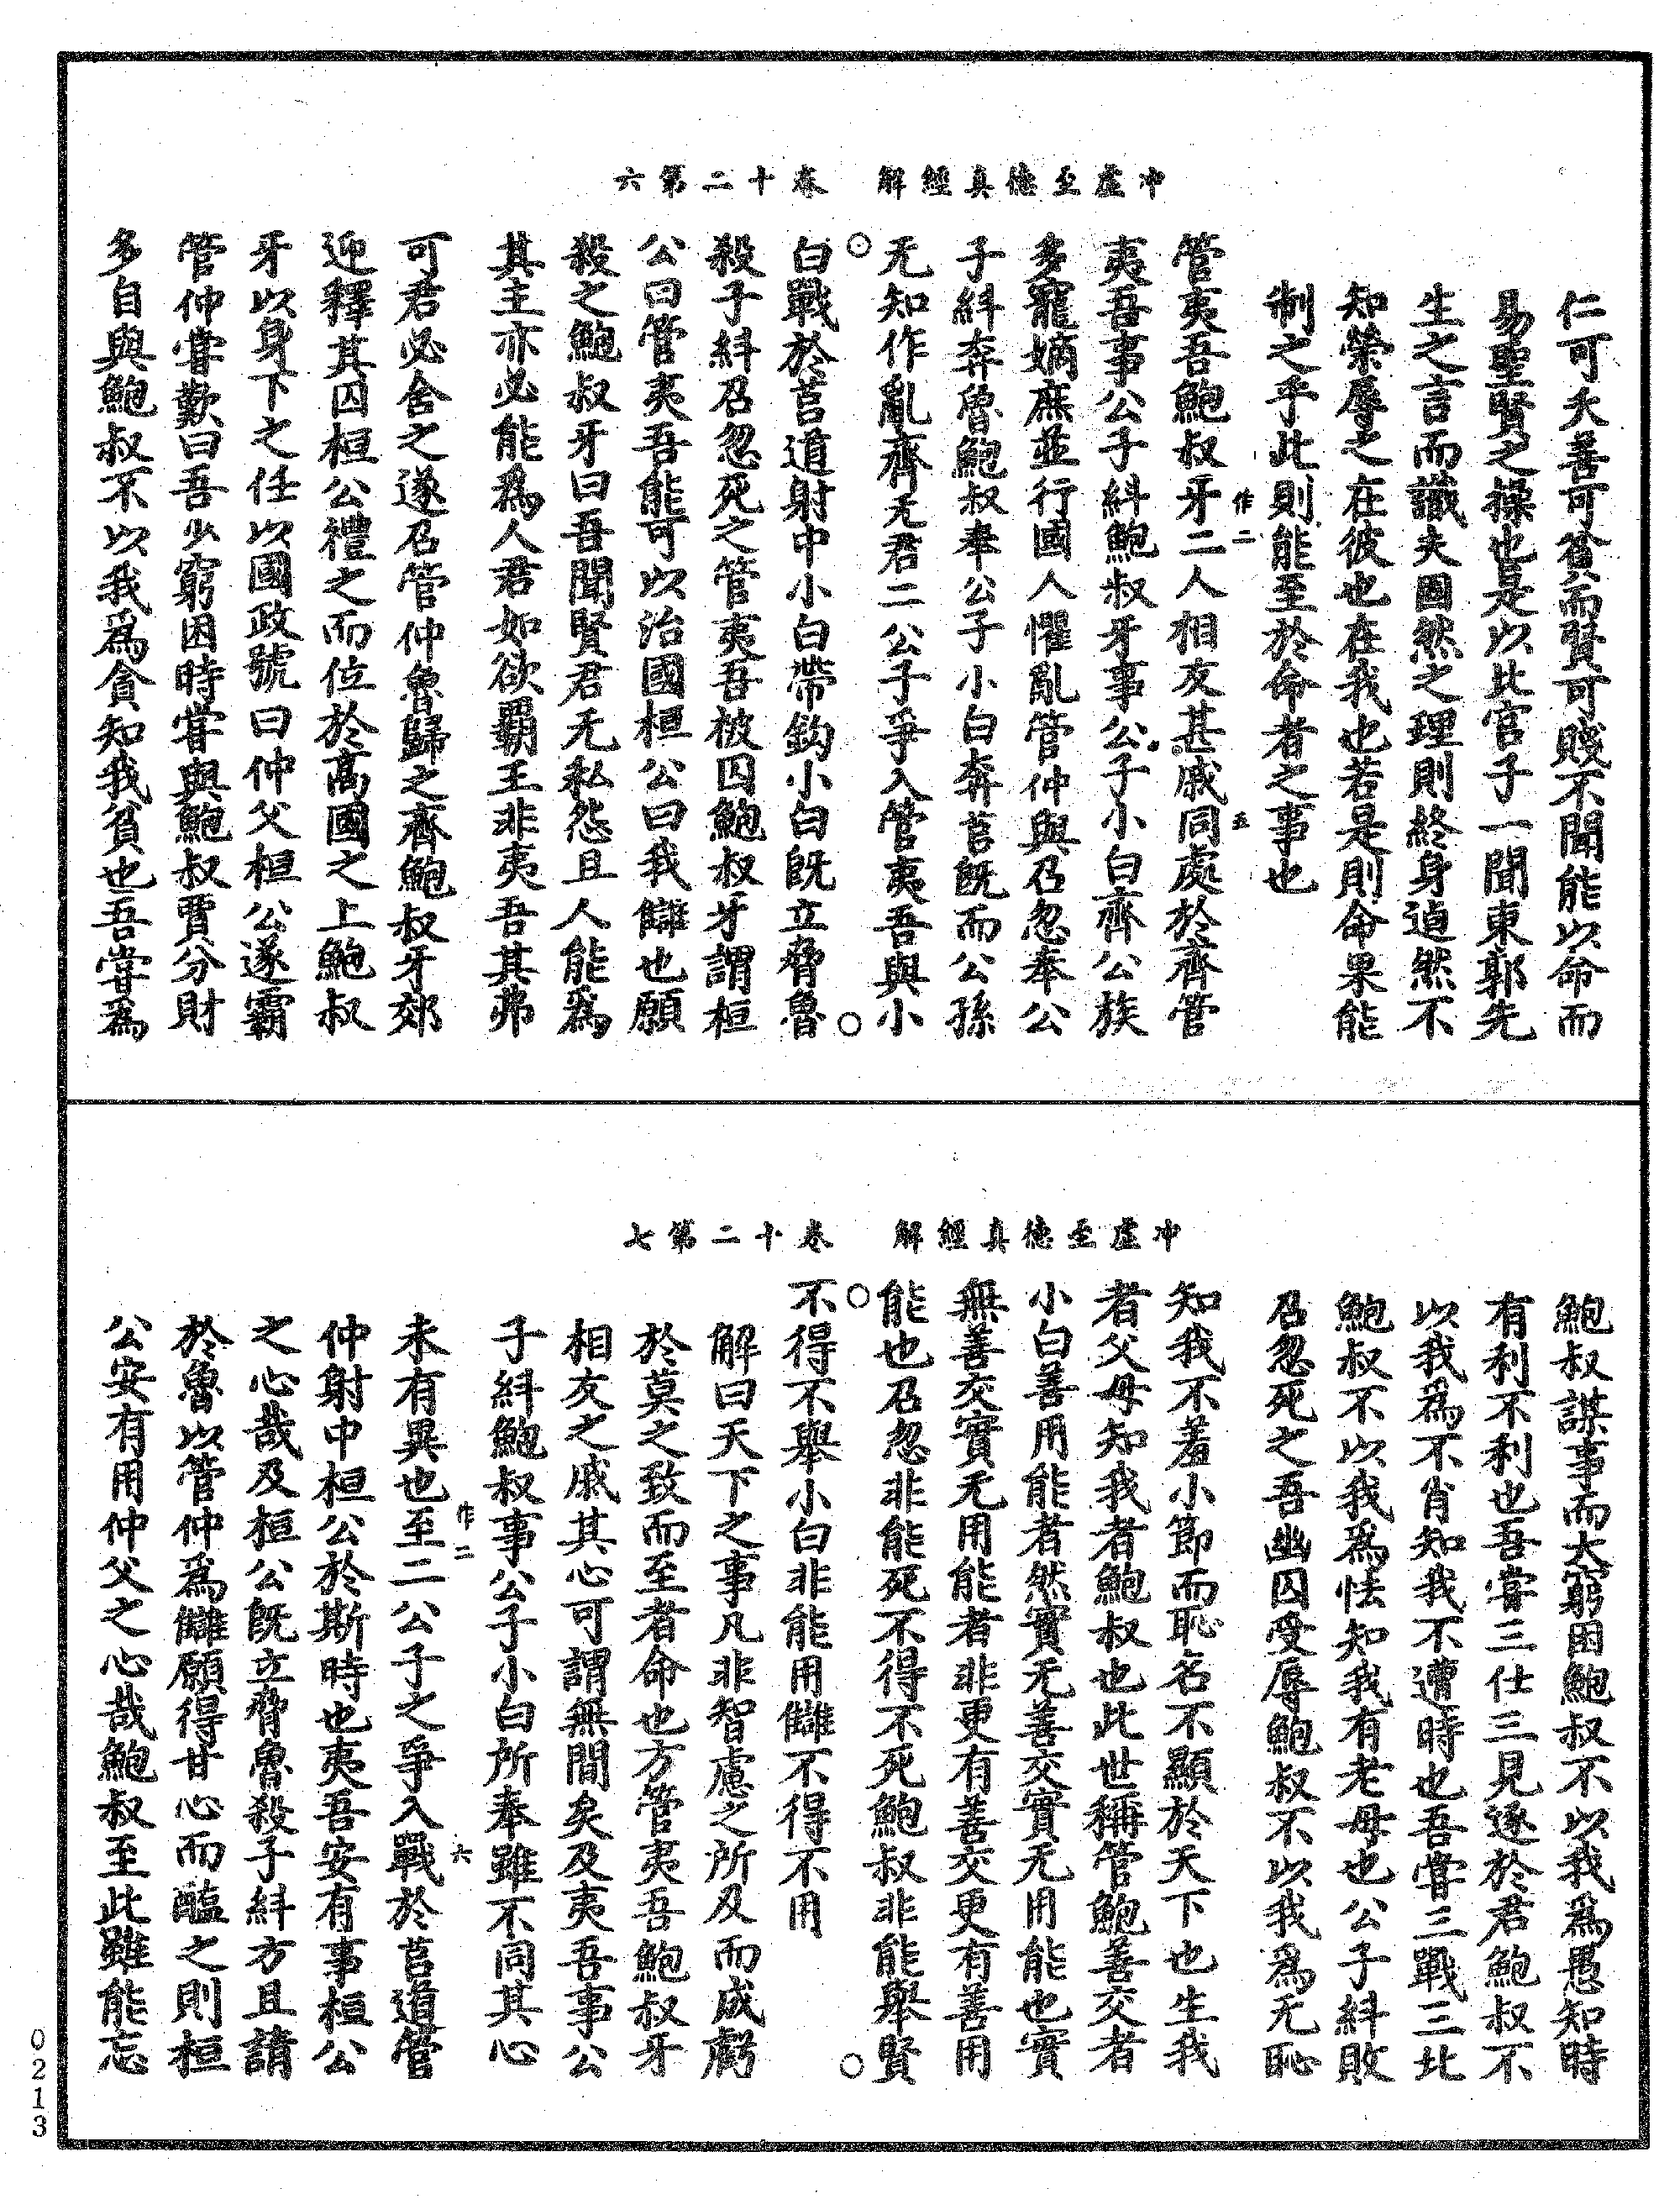 冲虛至德真經解　卷十二第六
仁可夭善可貧而賢可賤不聞能以命而
易聖賢之操也是以北宮子一聞東郭先
生之言而識夫固然之理則終身逌然不
知榮辱之在彼也在我也若是則命果能
制之乎此則能至於命者之事也
作二　五
管夷吾鮑叔牙二人相友甚戚同處於齊管
夷吾事公子糾鮑叔牙事公子小白齊公族
多寵嫡庶並行國人懼亂管仲與召忽奉公
子糾奔魯鮑叔奉公子小白奔莒旣而公孫
无知作亂齊无君二公子爭入管夷吾與小
白戰於莒道射中小白帶鈎小白旣立脅魯
殺子糾召忽死之管夷吾被囚鮑叔牙謂桓
公曰管夷吾能可以治國桓公曰我讎也願
殺之鮑叔牙曰吾聞賢君无私怨且人能爲
其主亦必能爲人君如欲霸王非夷吾其弗
可君必舍之遂召管仲魯歸之齊鮑叔牙郊
迎釋其囚桓公禮之而位於高國之上鮑叔
牙以身下之任以國政號曰仲父桓公遂霸
管仲嘗歎曰吾少窮困時嘗與鮑叔賈分財
多自與鮑叔不以我爲貪知我貧也吾嘗爲
冲虛至德真經解　卷十二第七
鮑叔謀事而大窮困鮑叔不以我爲愚知時
有利不利也吾嘗三仕三見逐於君鮑叔不
以我爲不肖知我不遭時也吾嘗三戰三北
鮑叔不以我爲怯知我有老母也公子糾敗
召忽死之吾幽囚受辱鮑叔不以我爲无恥
知我不羞小節而恥名不顯於天下也生我
者父母知我者鮑叔也此世稱管鮑善交者
小白善用能者然實无善交實无用能也實
無善交實无用能者非更有善交更有善用
能也召忽非能死不得不死鮑叔非能舉賢
不得不舉小白非能用讎不得不用
解曰天下之事凡非智慮之所及而成虧
於莫之致而至者命也方管夷吾鮑叔牙
相友之戚其心可謂無間矣及夷吾事公
子糾鮑叔事公子小白所奉雖不同其心
作二　六
未有異也至二公子之爭入戰於莒道管
仲射中桓公於斯時也夷吾安有事桓公
之心哉及桓公旣立脅魯殺子糾方且請
於魯以管仲爲讎願得甘心而醢之則桓
公安有用仲父之心哉鮑叔至此雖能忘
0213